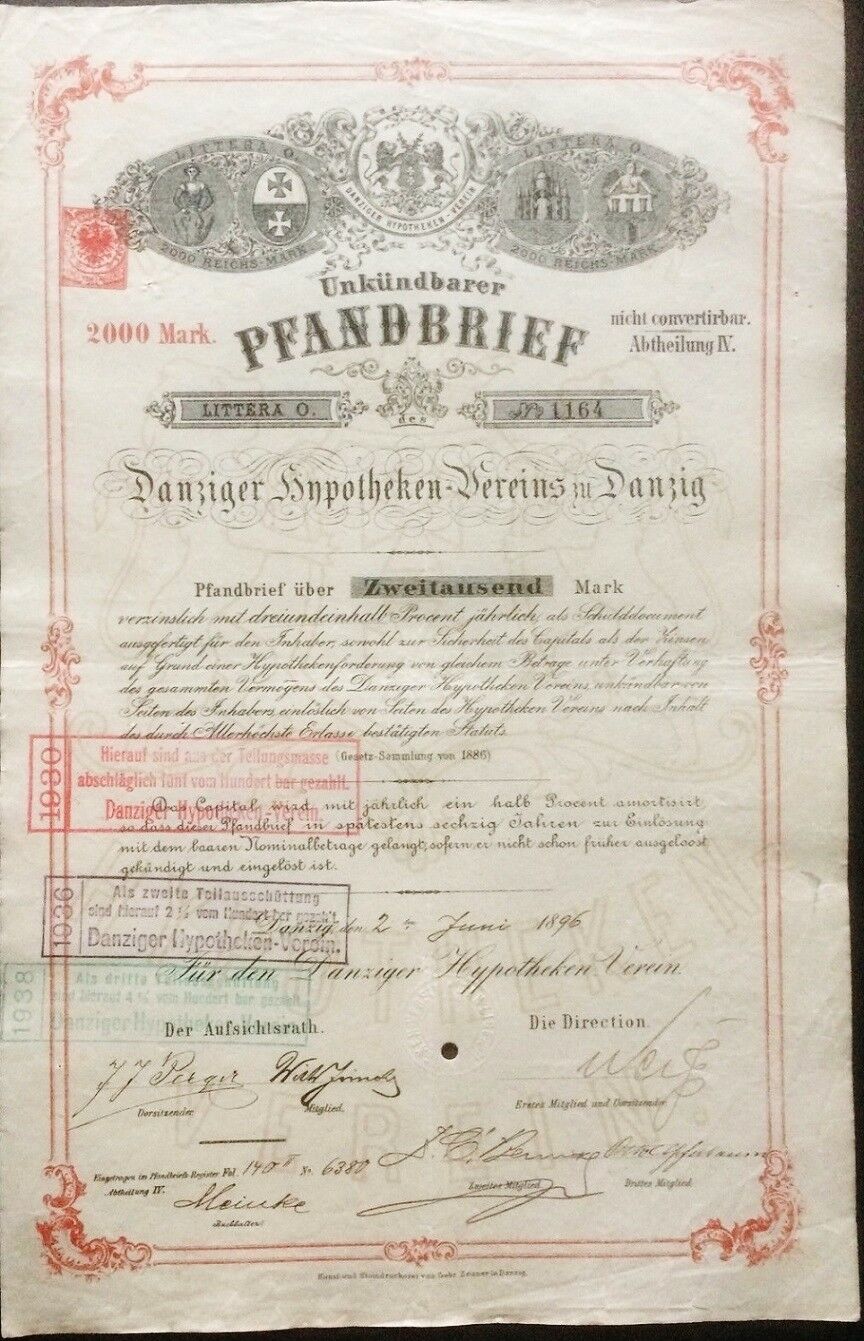 LITTERA O.
2000 REICHS-MARK
DANZIGER HYPOTHEKEN-VEREIN
LITTERA O.
2000 REICHS-MARK
Unkündbarer
2000 Mark.
PFANDBRIEF
nicht convertirbar.
Abtheilung IV.
LITTERA O.
des
No 1164
Danziger Hypotheken-Vereins zu Danzig
Pfandbrief über Zweitausend Mark
verzinslich mit dreiundeinhalb Procent jährlich, als Schulddocument
ausgefertigt für den Inhaber, sowohl zur Sicherheit des Capitals als der Zinsen,
auf Grund einer Hypothekenforderung von gleichem Betrage unter Verhaftung
des gesammten Vermögens des Danziger Hypotheken Vereins, unkündbar von
Seiten des Inhabers, einlöslich von Seiten des Hypotheken Vereins nach Inhalt
des durch Allerhöchste Erlasse bestätigten Statuts.
(Gesetz-Sammlung von 1886)
1930
Hierauf sind aus der Teilungsmasse
abschläglich fünf vom Hundert bar gezahlt.
Danziger Hypotheken-Verein.
Das Capital wird mit jährlich ein halb Procent amortisirt,
so dass dieser Pfandbrief in spätestens sechzig Jahren zur Einlösung
mit dem baaren Nominalbetrage gelangt, sofern er nicht schon früher ausgeloost
gekündigt und eingelöst ist.
1936
Als zweite Teilausschüttung
sind hierauf 2 % vom Hundert bar gezahlt.
Danziger Hypotheken-Verein.
Danzig, den 2 ten Juni 1896
Für den Danziger Hypotheken Verein.
1938
Als dritte Teilausschüttung
sind hierauf 4 % vom Hundert bar gezahlt.
Danziger Hypotheken-Verein.
Der Aufsichtsrath.
Die Direction.
Vorsitzender
Mitglied.
Erstes Mitglied und Vorsitzender
Eingetragen im Pfandbriefs-Register Fol. 140 II No. 6380
Abtheilung IV.
Zweites Mitglied.
Drittes Mitglied.
Meinke
Buchhalter
Kunst und Steindruckerei von Gebr. Zeuner in Danzig.